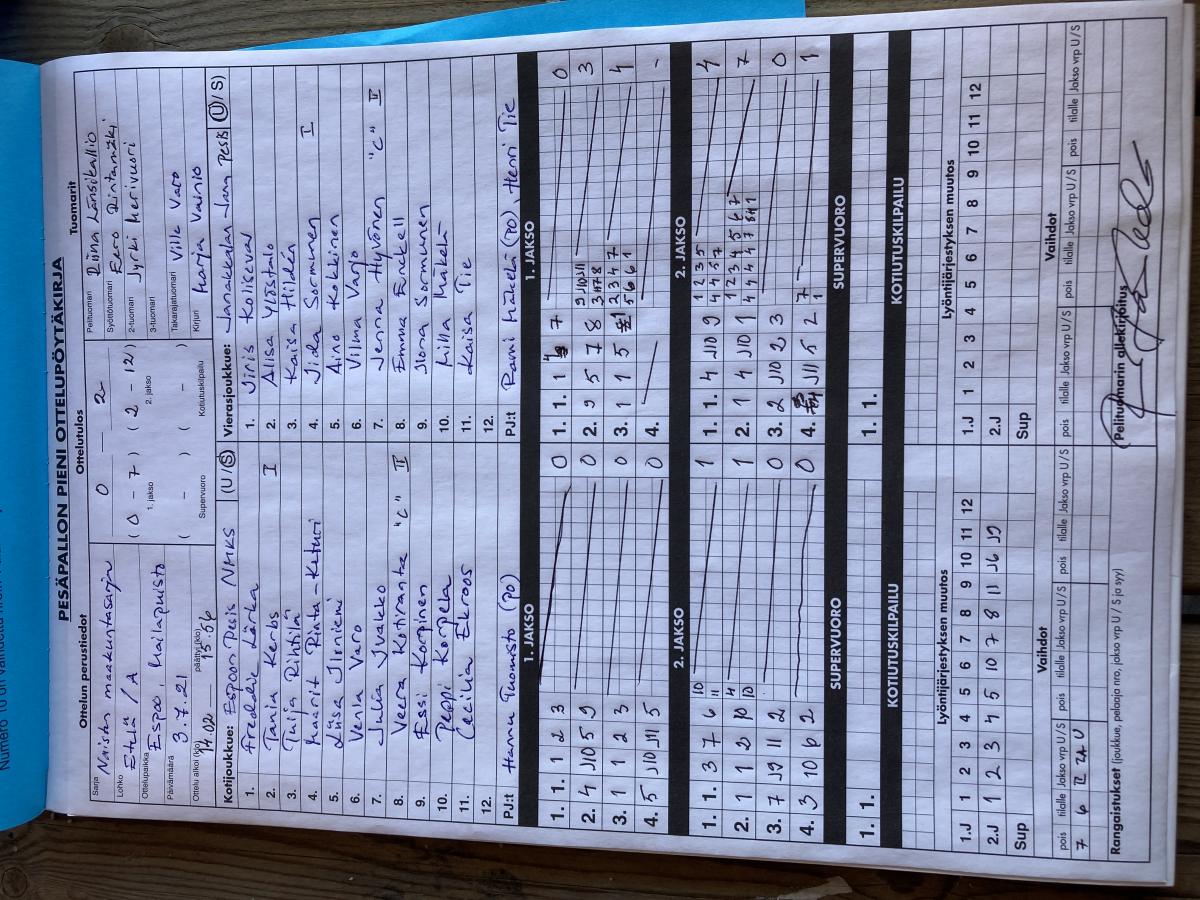 Numero 10 on vaihdettu
PESÄPALLON PIENI OTTELUPÖYTÄKIRJA
Ottelun perustiedot
Sarja Naisten maakuntasarja
Lohko Etelä / A
Ottelupaikka Espoo, Mailapuisto
Päivämäärä 3.7.21
Ottelu alkoi (klo) 14.02 päättyi (klo) 15.56
Ottelutulos
0 – 2
( 0 – 7 ) ( 2 – 12 )
1. jakso 2. jakso
( – ) ( – )
Supervuoro Kotiutuskilpailu
Tuomarit
Pelituomari Riina Länsikallio
Syöttötuomari Eero Rintamäki
2-tuomari Jyrki Herivuori
3-tuomari
Takarajatuomari Ville Varo
Kirjuri Marja Vainio
Kotijoukkue: Espoon Pesis NMKS (U / S)
1. Freddie Lärka
2. Tania Kerbs I
3. Tuija Rihtilä
4. Maarit Rinta-Keturi
5. Liisa Jirniemi
6. Venla Varo
7. Julia Jvakko
8. Veera Kotiranta "C" II
9. Essi Korpinen
10. Peppi Korpela
11. Cecilia Ekroos
12.
PJ:t Hannu Tuomisto (PO)
Vierasjoukkue: Janakkalan Jana Pesis (U / S)
1. Jiris Koliseva
2. Alisa Ylöstalo
3. Kaisa Hildén
4. Jida Sormunen I
5. Aino Kokkinen
6. Vilma Varjo
7. Jenna Hyvönen "C" II
8. Emma Enckell
9. Jlona Sormunen
10. Milla Mäkelä
11. Kaisa Tie
12.
PJ:t Rami Mäkelä (PO), Henri Tie
1. JAKSO
1. 1. 1 2 3 0
2. 4 J10 5 9 0
3. 1 1 2 3 0
4. 5 J10 J11 5 0
1. JAKSO
1. 1. 1 4 7 0
2. 9 5 7 8 9 J10 J11 3 J17 8 3
3. 1 1 5 2 3 4 7 5 6 6 1 4
4. -
2. JAKSO
1. 1. 3 7 6 10 11 1
2. 1 1 2 10 4 10 1
3. 7 J9 11 2 0
4. 3 10 6 2 0
2. JAKSO
1. 1. 4 J10 9 1 2 3 5 4 4 5 7 4
2. 1 4 J10 1 1 2 3 4 5 6 7 4 4 4 4 7 7
3. 2 J10 2 3 0
4. J11 5 2 7 1 1
SUPERVUORO
1. 1.
SUPERVUORO
1. 1.
KOTIUTUSKILPAILU
KOTIUTUSKILPAILU
Lyöntijärjestyksen muutos
1.J 1 2 3 4 5 6 7 8 9 10 11 12
2.J 1 2 3 4 5 10 7 8 11 J6 J9
Sup
Lyöntijärjestyksen muutos
1.J 1 2 3 4 5 6 7 8 9 10 11 12
2.J
Sup
Vaihdot
pois tilalle Jakso vrp U / S pois tilalle Jakso vrp U / S pois tilalle Jakso vrp U / S pois tilalle Jakso vrp U / S
7 6 II 2A U
Vaihdot
pois tilalle Jakso vrp U / S pois tilalle Jakso vrp U / S pois tilalle Jakso vrp U / S pois tilalle Jakso vrp U / S
Rangaistukset (joukkue, pelaaja nro, jakso vrp U / S ja syy)
Pelituomarin allekirjoitus